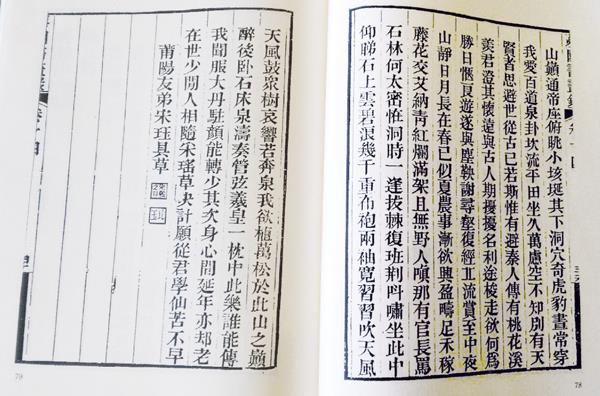 山巔通帝座俯眺小垓埏其下洞穴奇虎豹晝常穿
我愛百道泉卦坎流平田坐久萬慮空不知別有天
賢者思避世從古已若斯惟有避秦人傳有桃花溪
羨君澄其懷遠與古人期擾擾名利途梭走欲何為
勝日愜夏遊遂與塵鞅謝尋壑復經丘流賞至中夜
山靜日月長在春已似夏農事漸欲興盈疇足禾稼
藤花交叉納青紅爛滿架且無野人嗔那有官長罵
石林何太密怪洞時一逢拔棘復班荆吟嘯坐此中
仰睇石上雲碧浪幾千重布袍兩袖寬習習吹天風
天風鼓眾樹哀響若奔泉我欲植萬松於此山之巔
醉後卧石床泉濤奏管弦羲皇一枕中此樂誰能傳
我聞服大丹駐顏能轉少其次身心閒延年亦却老
在世少閒人相隨采瑤草决計願從君學仙苦不早
莆陽友弟宋珏具草
78
79